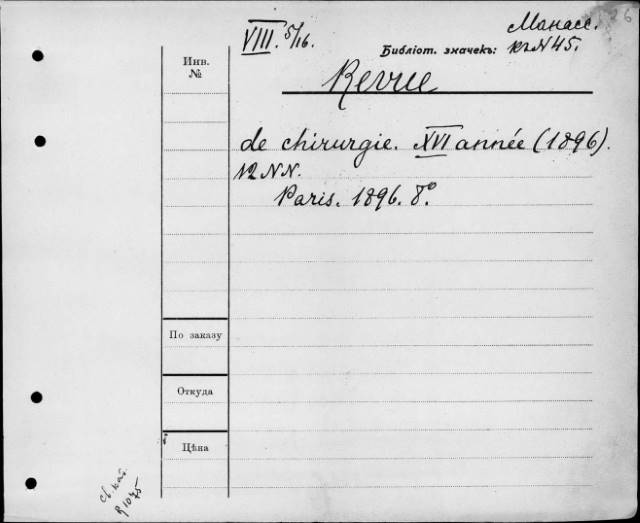 VIII. 5/16.
Манасс.
Библіот. значекъ: кг N 45.
Инв.
№
Revue
de chirurgie. XVI année (1896).
12 NN.
Paris. 1896. 8°.
По заказу
Откуда
Цѣна